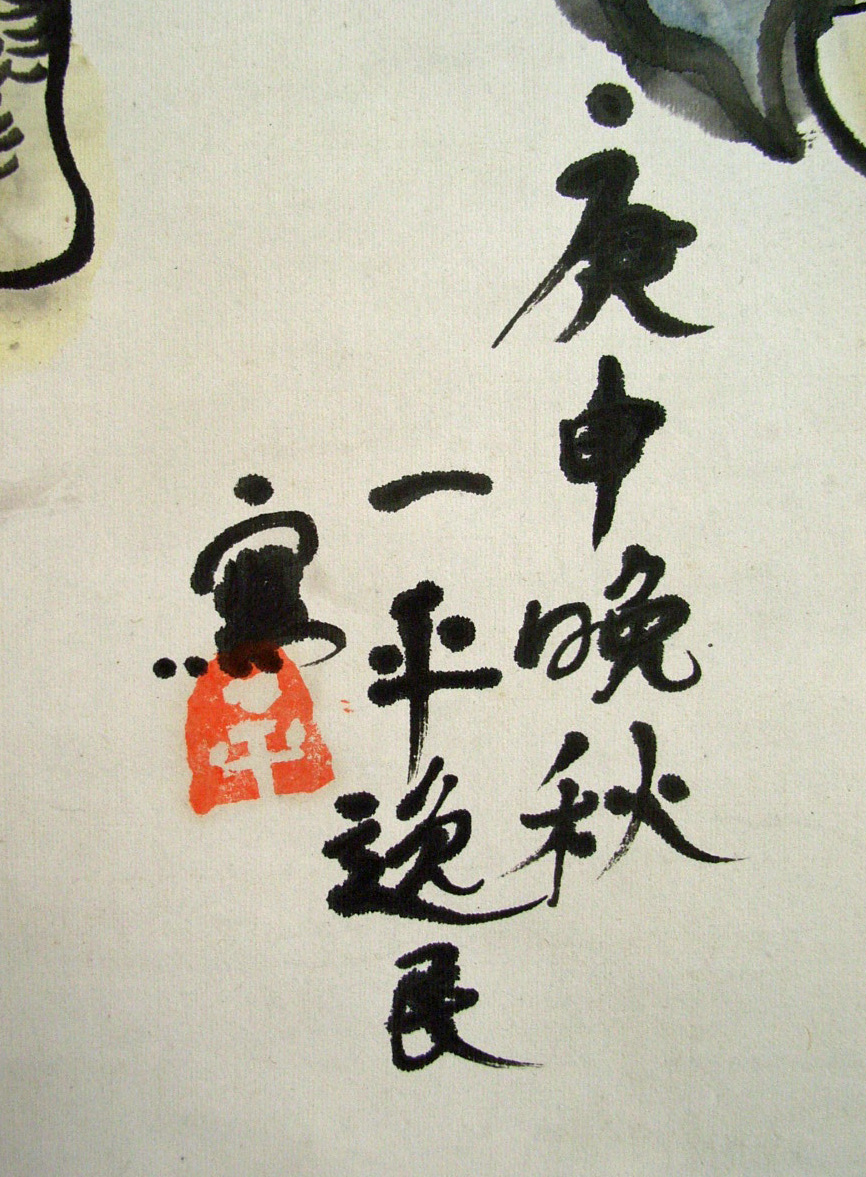 庚申晚秋
一平逸民
寫
一平